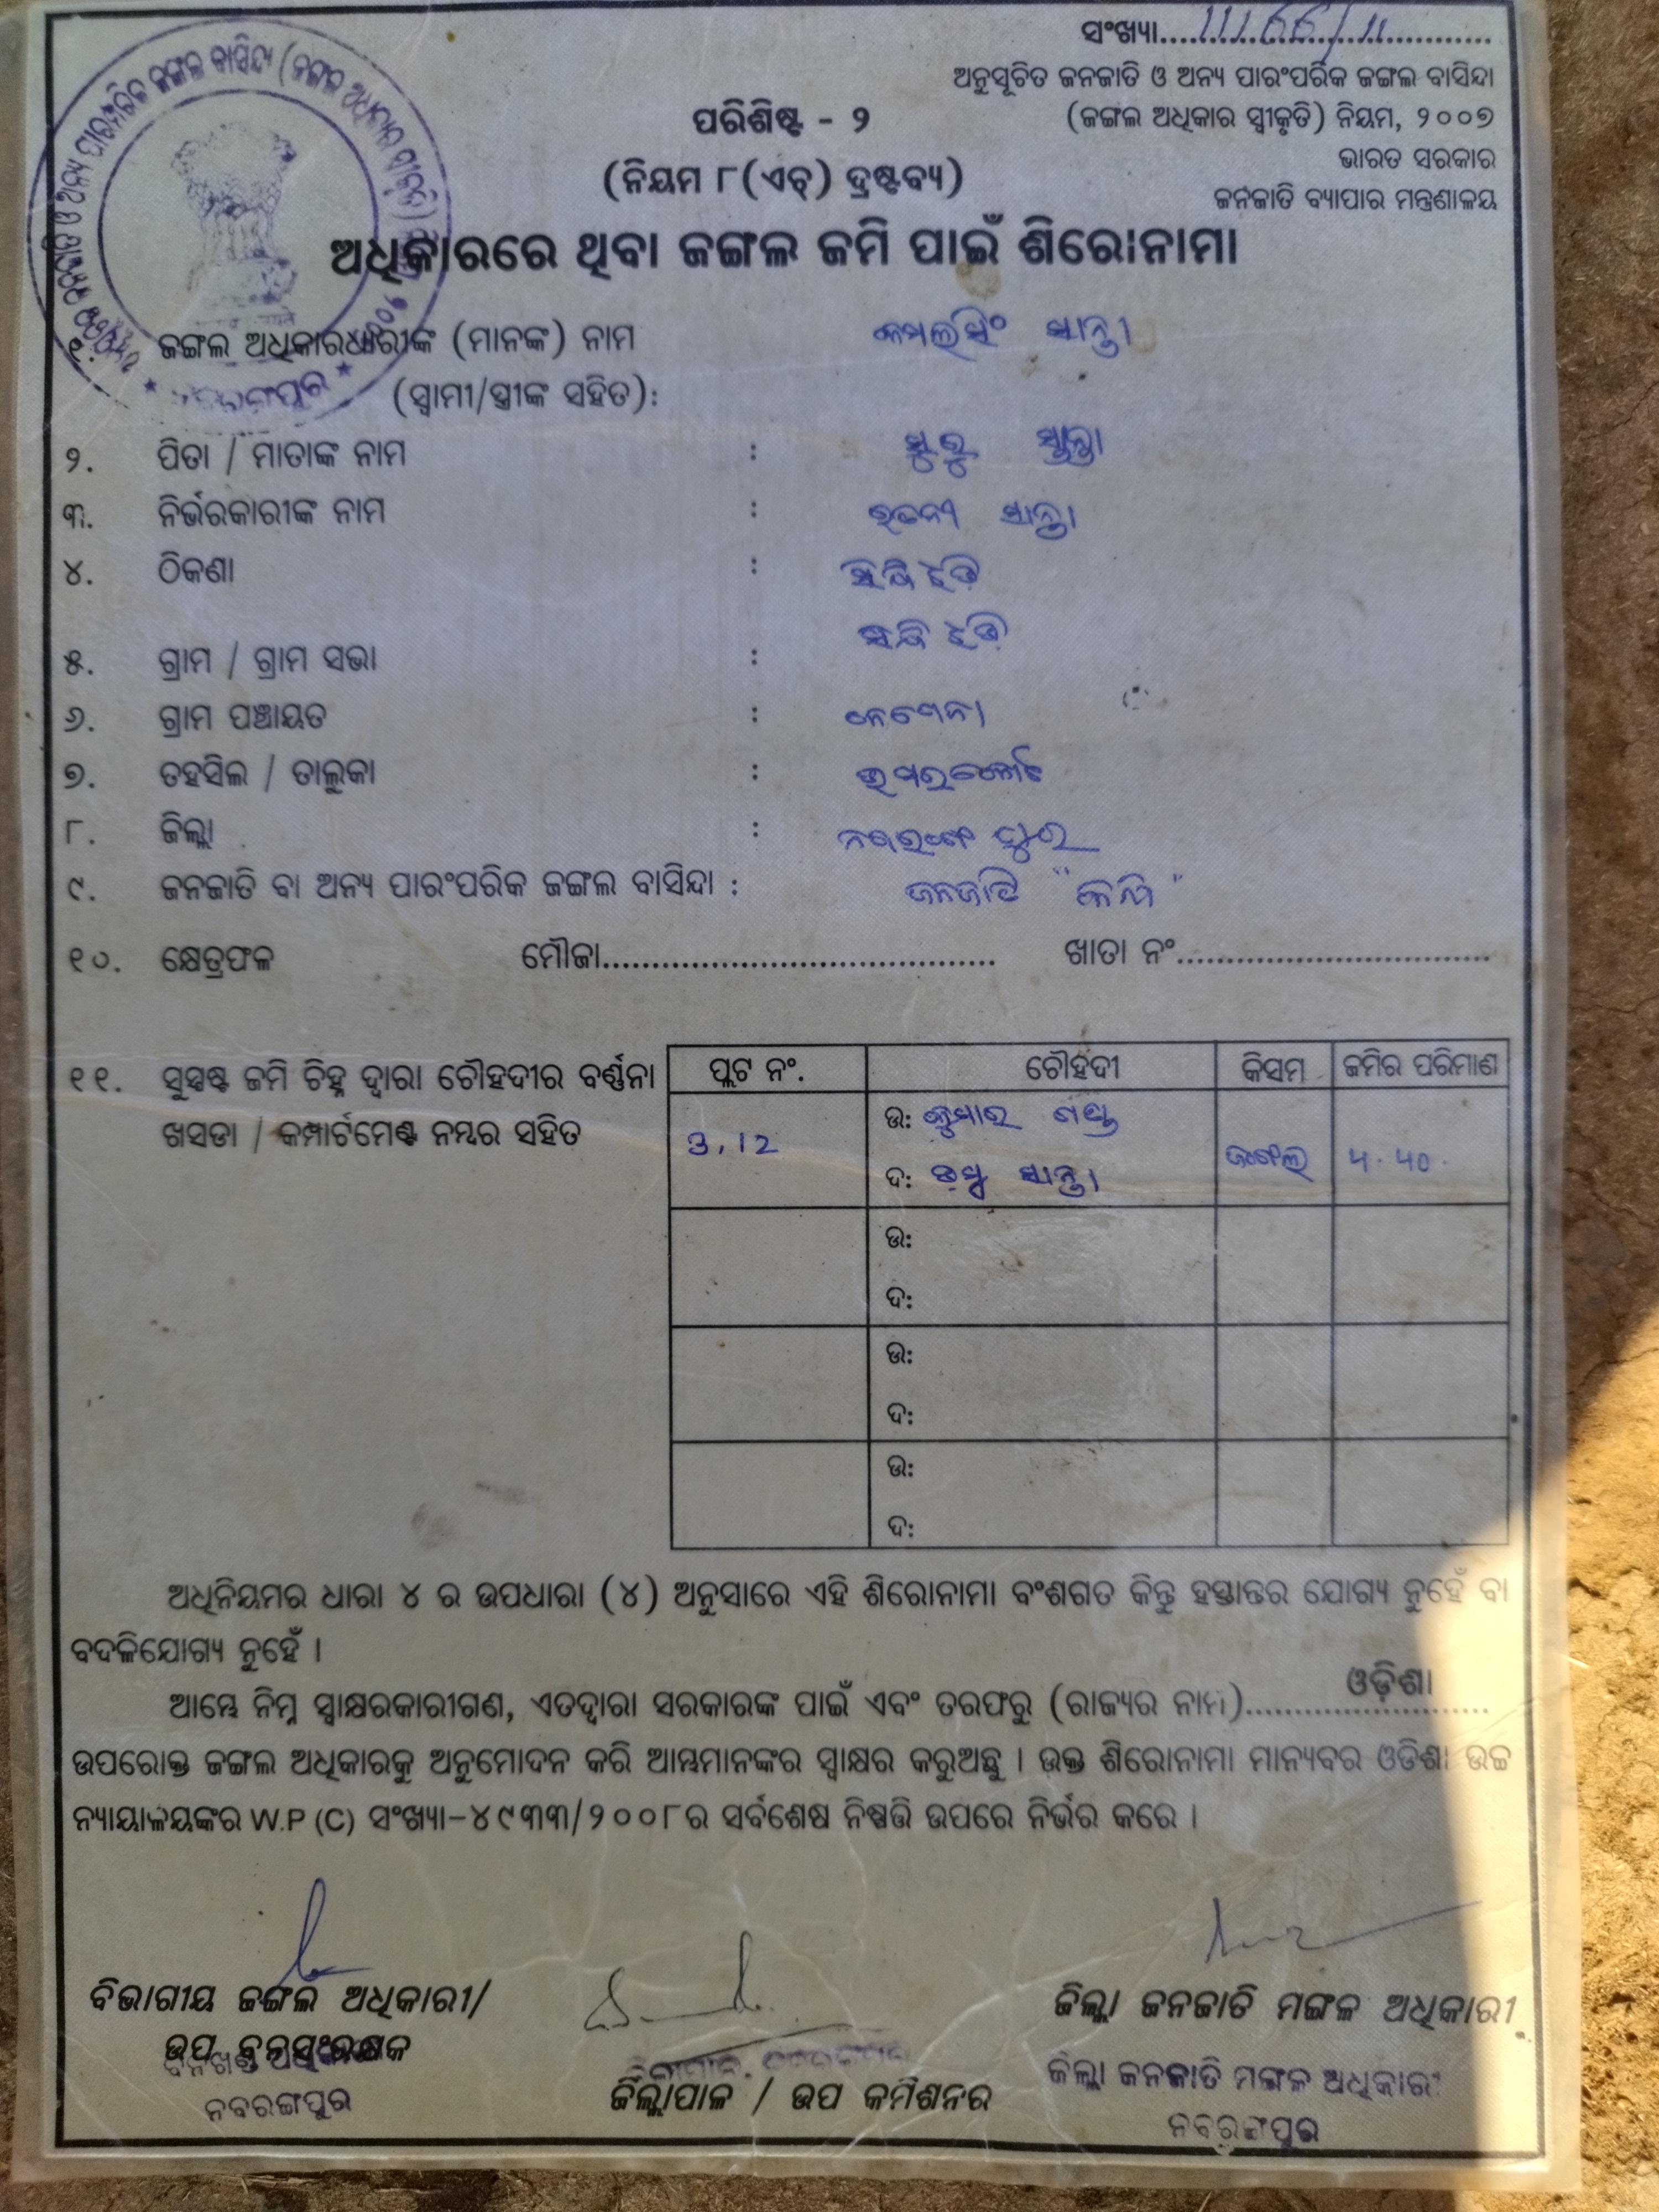 ସଂଖ୍ୟା....11166/11....
ଅନୁସୂଚିତ ଜନଜାତି ଓ ଅନ୍ୟ ପାରଂପରିକ ଜଙ୍ଗଲ ବାସିନ୍ଦା
(ଜଙ୍ଗଲ ଅଧିକାର ସ୍ୱୀକୃତି) ନିୟମ, ୨୦୦୭
ଭାରତ ସରକାର
ଜନଜାତି ବ୍ୟାପାର ମନ୍ତ୍ରଣାଳୟ
ପରିଶିଷ୍ଟ - ୨
(ନିୟମ ୮(ଏଚ୍) ଦ୍ରଷ୍ଟବ୍ୟ)
ଅଧିକାରରେ ଥିବା ଜଙ୍ଗଲ ଜମି ପାଇଁ ଶିରୋନାମା
୧. ଜଙ୍ଗଲ ଅଧିକାରଧାରୀଙ୍କ (ମାନଙ୍କ) ନାମ କମଲସିଂ ସାନ୍ତା
(ସ୍ୱାମୀ/ସ୍ତ୍ରୀଙ୍କ ସହିତ):
୨. ପିତା / ମାତାଙ୍କ ନାମ : ସାନ୍ତା
୩. ନିର୍ଭରକାରୀଙ୍କ ନାମ : ସାନ୍ତା
୪. ଠିକଣା :
୫. ଗ୍ରାମ / ଗ୍ରାମ ସଭା :
୬. ଗ୍ରାମ ପଞ୍ଚାୟତ :
୭. ତହସିଲ / ତାଲୁକା : ଉମରକୋଟ
୮. ଜିଲ୍ଲା : ନବରଙ୍ଗପୁର
୯. ଜନଜାତି ବା ଅନ୍ୟ ପାରଂପରିକ ଜଙ୍ଗଲ ବାସିନ୍ଦା : ଜନଜାତି
୧୦. କ୍ଷେତ୍ରଫଳ ମୌଜା........ ଖାତା ନଂ........
୧୧. ସୁସ୍ପଷ୍ଟ ଜମି ଚିହ୍ନ ଦ୍ୱାରା ଚୌହଦୀର ବର୍ଣ୍ଣନା
ଖସଡା / କମ୍ପାର୍ଟମେଣ୍ଟ ନମ୍ବର ସହିତ
ପ୍ଲଟ ନଂ. ଚୌହଦୀ କିସମ ଜମିର ପରିମାଣ
ଉ: କୁମାର ଗଣ୍ଡ
ଦ: ସାନ୍ତା ଜଙ୍ଗଲ
ଉ:
ଦ:
ଉ:
ଦ:
ଉ:
ଦ:
ଅଧିନିୟମର ଧାରା ୪ ର ଉପଧାରା (୪) ଅନୁସାରେ ଏହି ଶିରୋନାମା ବଂଶଗତ କିନ୍ତୁ ହସ୍ତାନ୍ତର ଯୋଗ୍ୟ ନୁହେଁ ବା
ବଦଳିଯୋଗ୍ୟ ନୁହେଁ ।
ଆମ୍ଭେ ନିମ୍ନ ସ୍ୱାକ୍ଷରକାରୀଗଣ, ଏତଦ୍ୱାରା ସରକାରଙ୍କ ପାଇଁ ଏବଂ ତରଫରୁ (ରାଜ୍ୟର ନାମ)....ଓଡ଼ିଶା....
ଉପରୋକ୍ତ ଜଙ୍ଗଲ ଅଧିକାରକୁ ଅନୁମୋଦନ କରି ଆମ୍ଭମାନଙ୍କର ସ୍ୱାକ୍ଷର କରୁଅଛୁ । ଉକ୍ତ ଶିରୋନାମା ମାନ୍ୟବର ଓଡିଶା ଉଚ୍ଚ
ନ୍ୟାୟାଳୟଙ୍କର W.P (C) ସଂଖ୍ୟା-୪୯୩୩/୨୦୦୮ର ସର୍ବଶେଷ ନିଷ୍ପତ୍ତି ଉପରେ ନିର୍ଭର କରେ ।
ବିଭାଗୀୟ ଜଙ୍ଗଲ ଅଧିକାରୀ/
ଉପ ବନସଂରକ୍ଷକ
ନବରଙ୍ଗପୁର
ଜିଲ୍ଲାପାଳ / ଉପ କମିଶନର
ଜିଲ୍ଲା ଜନଜାତି ମଙ୍ଗଳ ଅଧିକାରୀ
ଜିଲ୍ଲା ଜନଜାତି ମଙ୍ଗଳ ଅଧିକାରୀ
ନବରଙ୍ଗପୁର